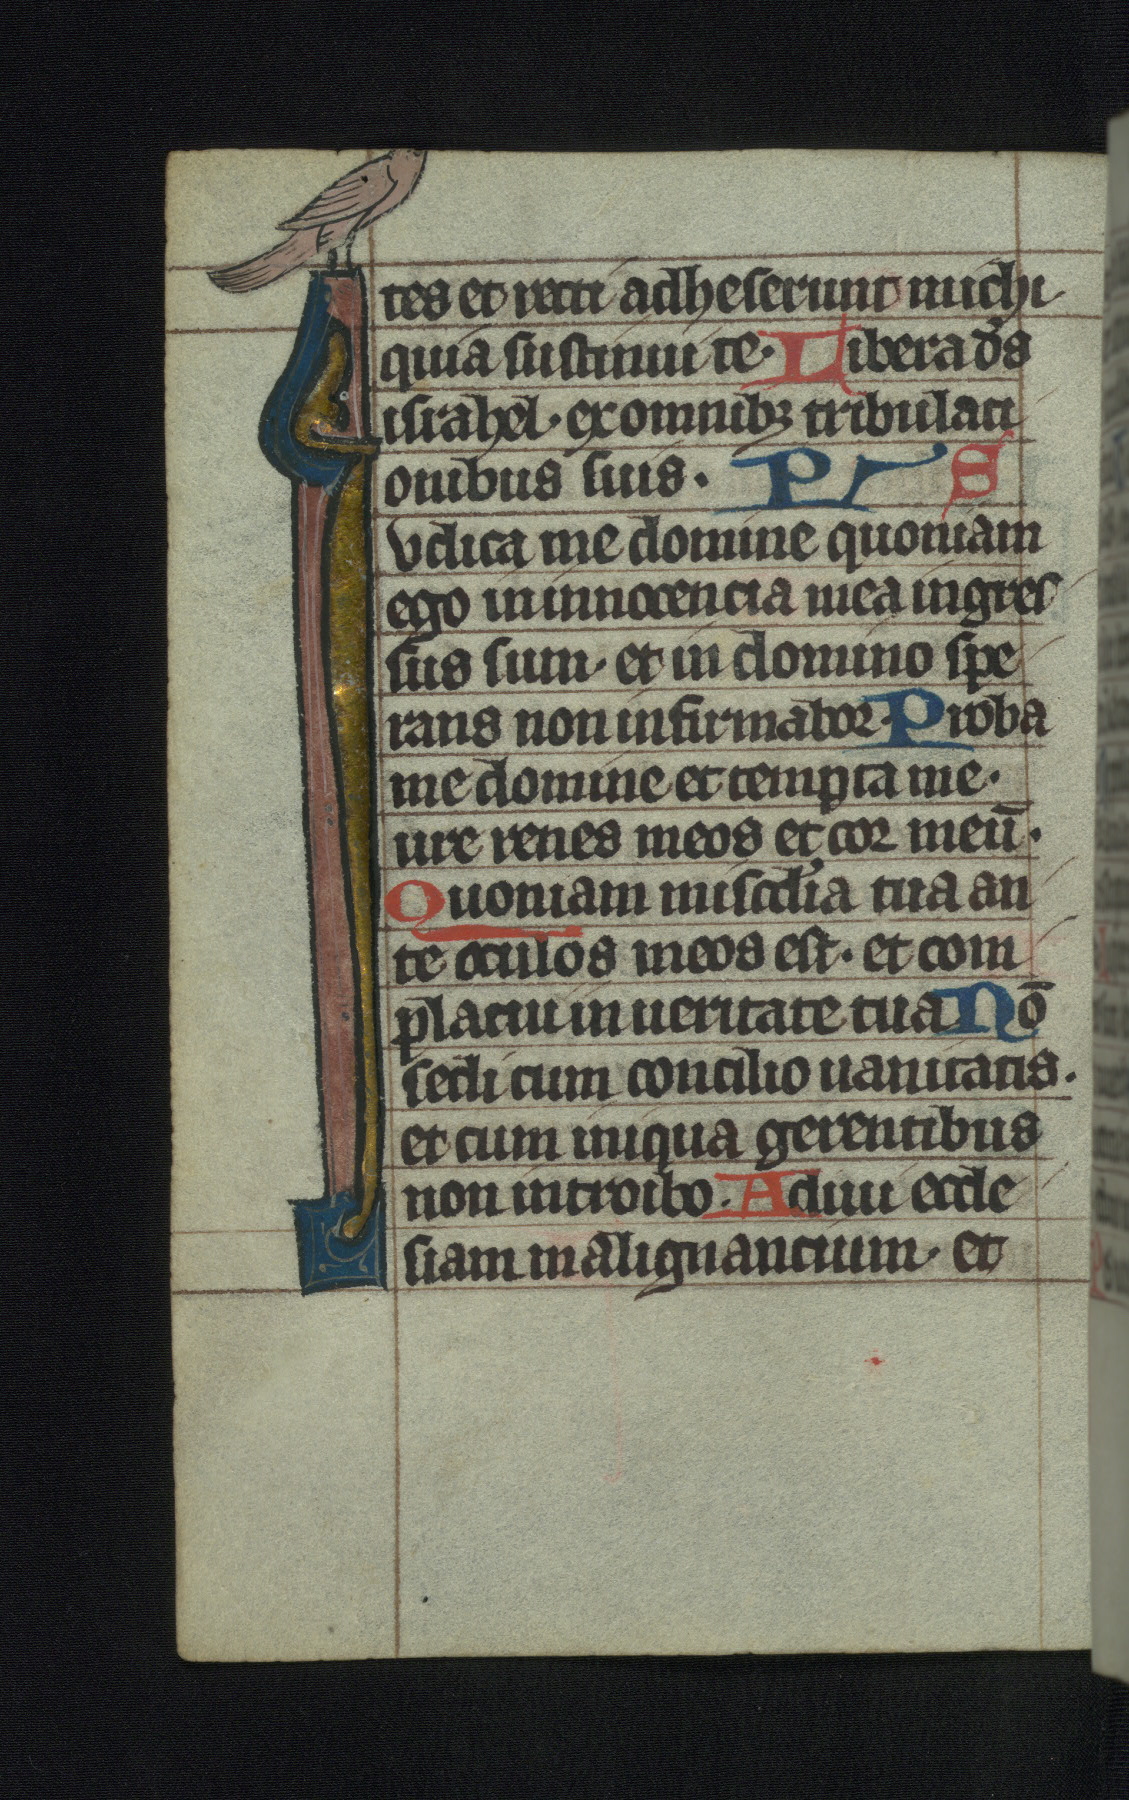 tes et recti adheserunt michi
quia sustinui te. Libera ds
israhel. ex omnibȝ tribulati
onibus suis. Ps
Iudica me domine quoniam
ego in innocencia mea ingres
sus sum. et in domino spe
rans non infirmabor. Proba
me domine et tempta me.
ure renes meos et cor meū.
Quoniam miscdia tua an
te oculos meos est. et com
placui in ueritate tua Nō
sedi cum concilio uanitatis.
et cum iniqua gerentibus
non introibo. Adiui eccle
siam malignancium. et